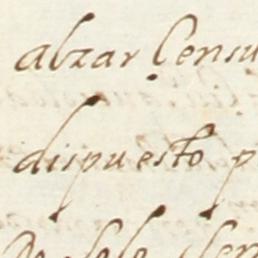 alzar Censu
dispuesto p